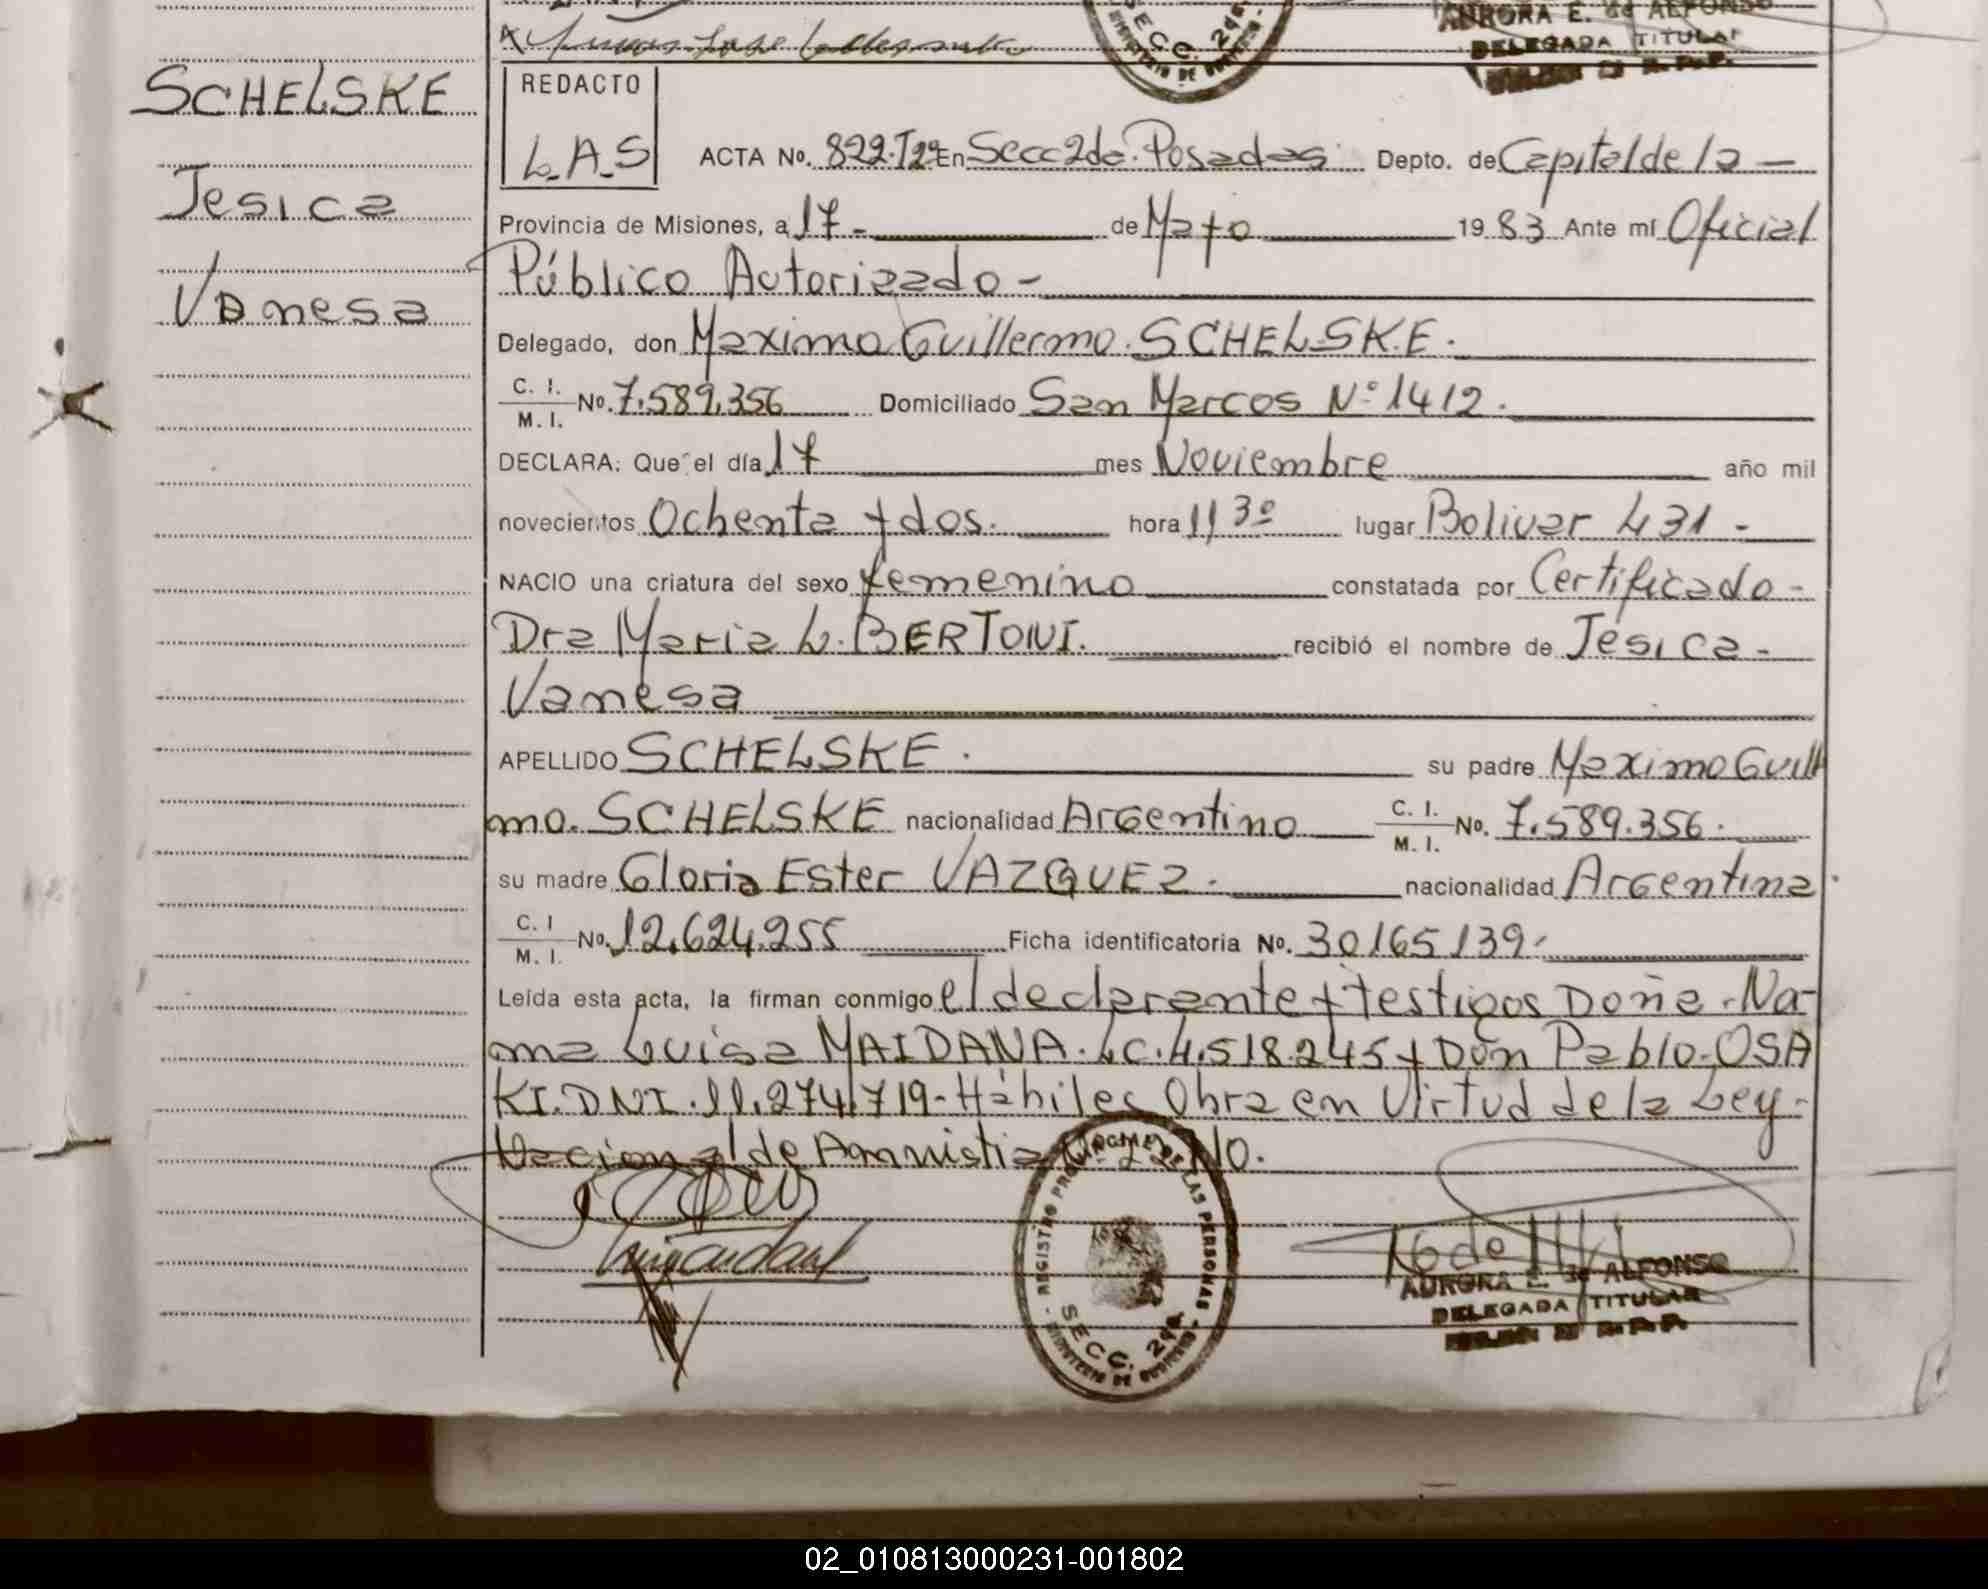 SECC. 2da.
AURORA E. de ALFONSO
DELEGADA TITULAR
SCHELSKE
Jesica
Vanesa
REDACTO
L.A.S
ACTA No. 822.Tº2º En Secc 2da. Posadas Depto. de Capital de la —
Provincia de Misiones, a 17 - de Mayo 1983 Ante mí Oficial
Público Autorizado -
Delegado, don Maximo Guillermo SCHELSKE.
C. I.
M. I. No. 7.589.356 Domiciliado San Marcos Nº 1412.
DECLARA: Que el día 17 mes Noviembre año mil
novecientos Ochenta y dos. hora 11 30 lugar Bolivar 431 -
NACIO una criatura del sexo femenino constatada por Certificado -
Dra Maria L. BERTONI. recibió el nombre de Jesica -
Vanesa
APELLIDO SCHELSKE. su padre Maximo Guill
mo. SCHELSKE nacionalidad Argentino C. I.
M. I. No. 7.589.356.
su madre Gloria Ester VAZQUEZ. nacionalidad Argentina.
C. I
M. I. No. 12.624.255 Ficha identificatoria No. 30165139.
Leída esta acta, la firman conmigo el declarante y testigos Doña
Luisa MAIDANA. L.C. 4.518.245 y Don Pablo OSA
KI. DNI. 11.274.719 - Hábiles Obra en Virtud de la Ley -
Nacional de Amnistia
REGISTRO PROVINCIAL DE LAS PERSONAS
SECC. 2da.
MINISTERIO DE GOBIERNO
AURORA E. de ALFONSO
DELEGADA TITULAR
02_010813000231-001802